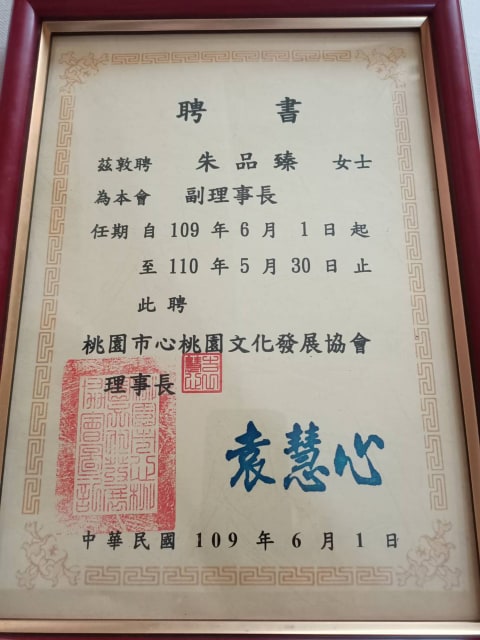 聘 書
茲敦聘 朱品臻 女士
為本會 副理事長
任期自 109 年 6 月 1 日起
至 110 年 5 月 30 日止
此聘
桃園市心桃園文化發展協會
理事長
袁慧心
中華民國 109 年 6 月 1 日